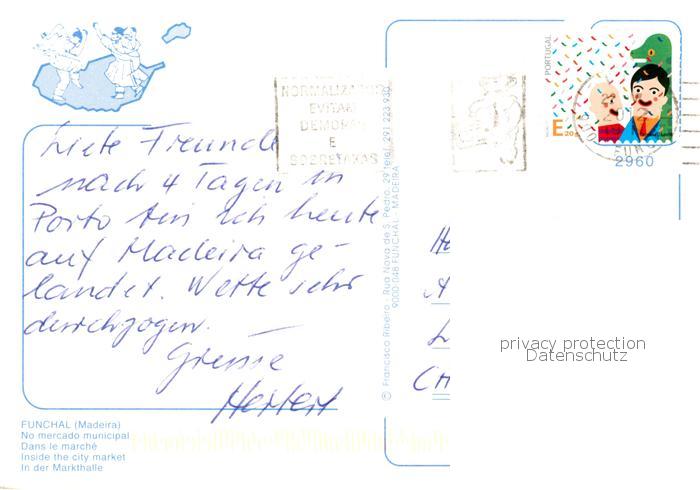 Liebe Freunde
nach 4 Tagen in
Porto bin ich heute
auf Madeira ge-
landet. Wette sehr
durchzogen.
Grüsse
Herbert
FUNCHAL (Madeira)
No mercado municipal
Dans le marché
Inside the city market
In der Markthalle
NORMALIZAÇÃO
EVITAM
DEMORAS
E
SOBRETAXAS
© Francisco Ribeiro - Rua Nova de S. Pedro, 29 telef. 291 223 930
9000 048 FUNCHAL - MADEIRA
PORTUGAL
E20g
2960
CH
privacy protection
Datenschutz